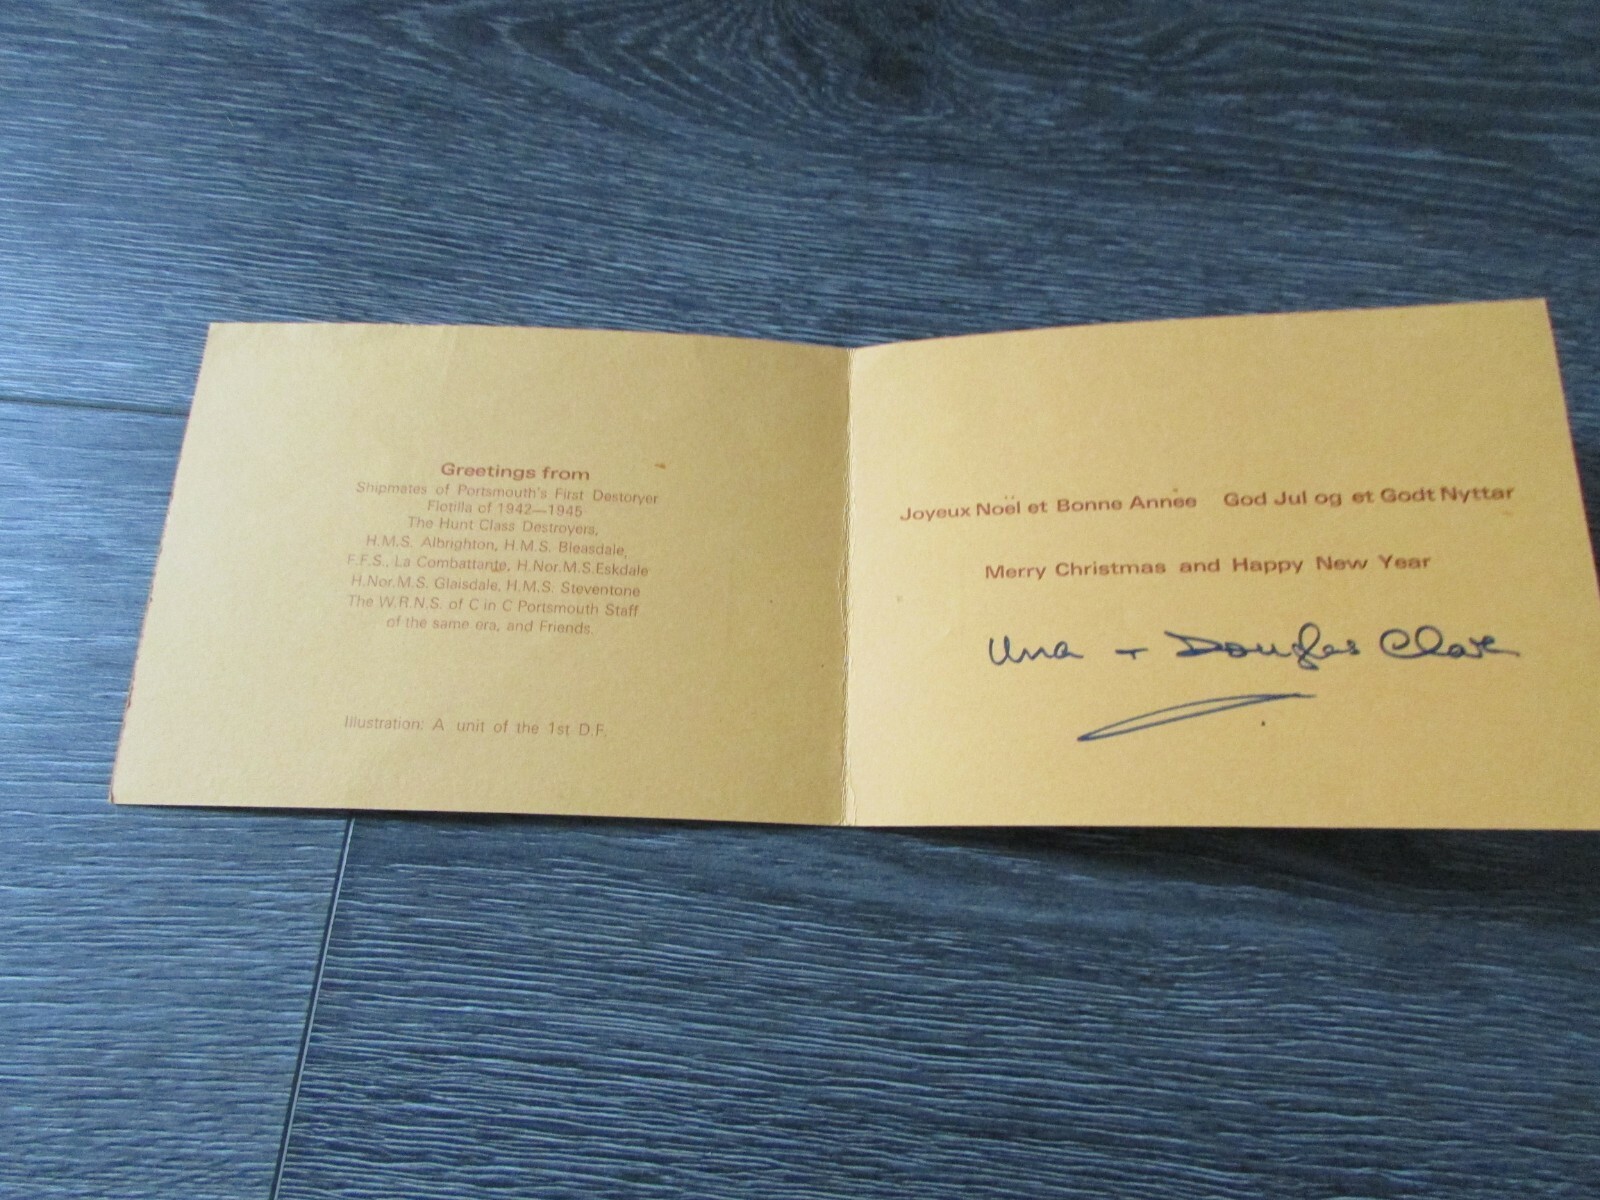 Greetings from
Shipmates of Portsmouth's First Destoryer
Flotilla of 1942—1945
The Hunt Class Destroyers,
H.M.S. Albrighton, H.M.S. Bleasdale,
F.F.S., La Combattante, H.Nor.M.S.Eskdale
H.Nor.M.S. Glaisdale, H.M.S. Steventone
The W.R.N.S. of C in C Portsmouth Staff
of the same era, and Friends.
Illustration: A unit of the 1st D.F.
Joyeux Noël et Bonne Année God Jul og et Godt Nyttar
Merry Christmas and Happy New Year
Una + Douglas Clark